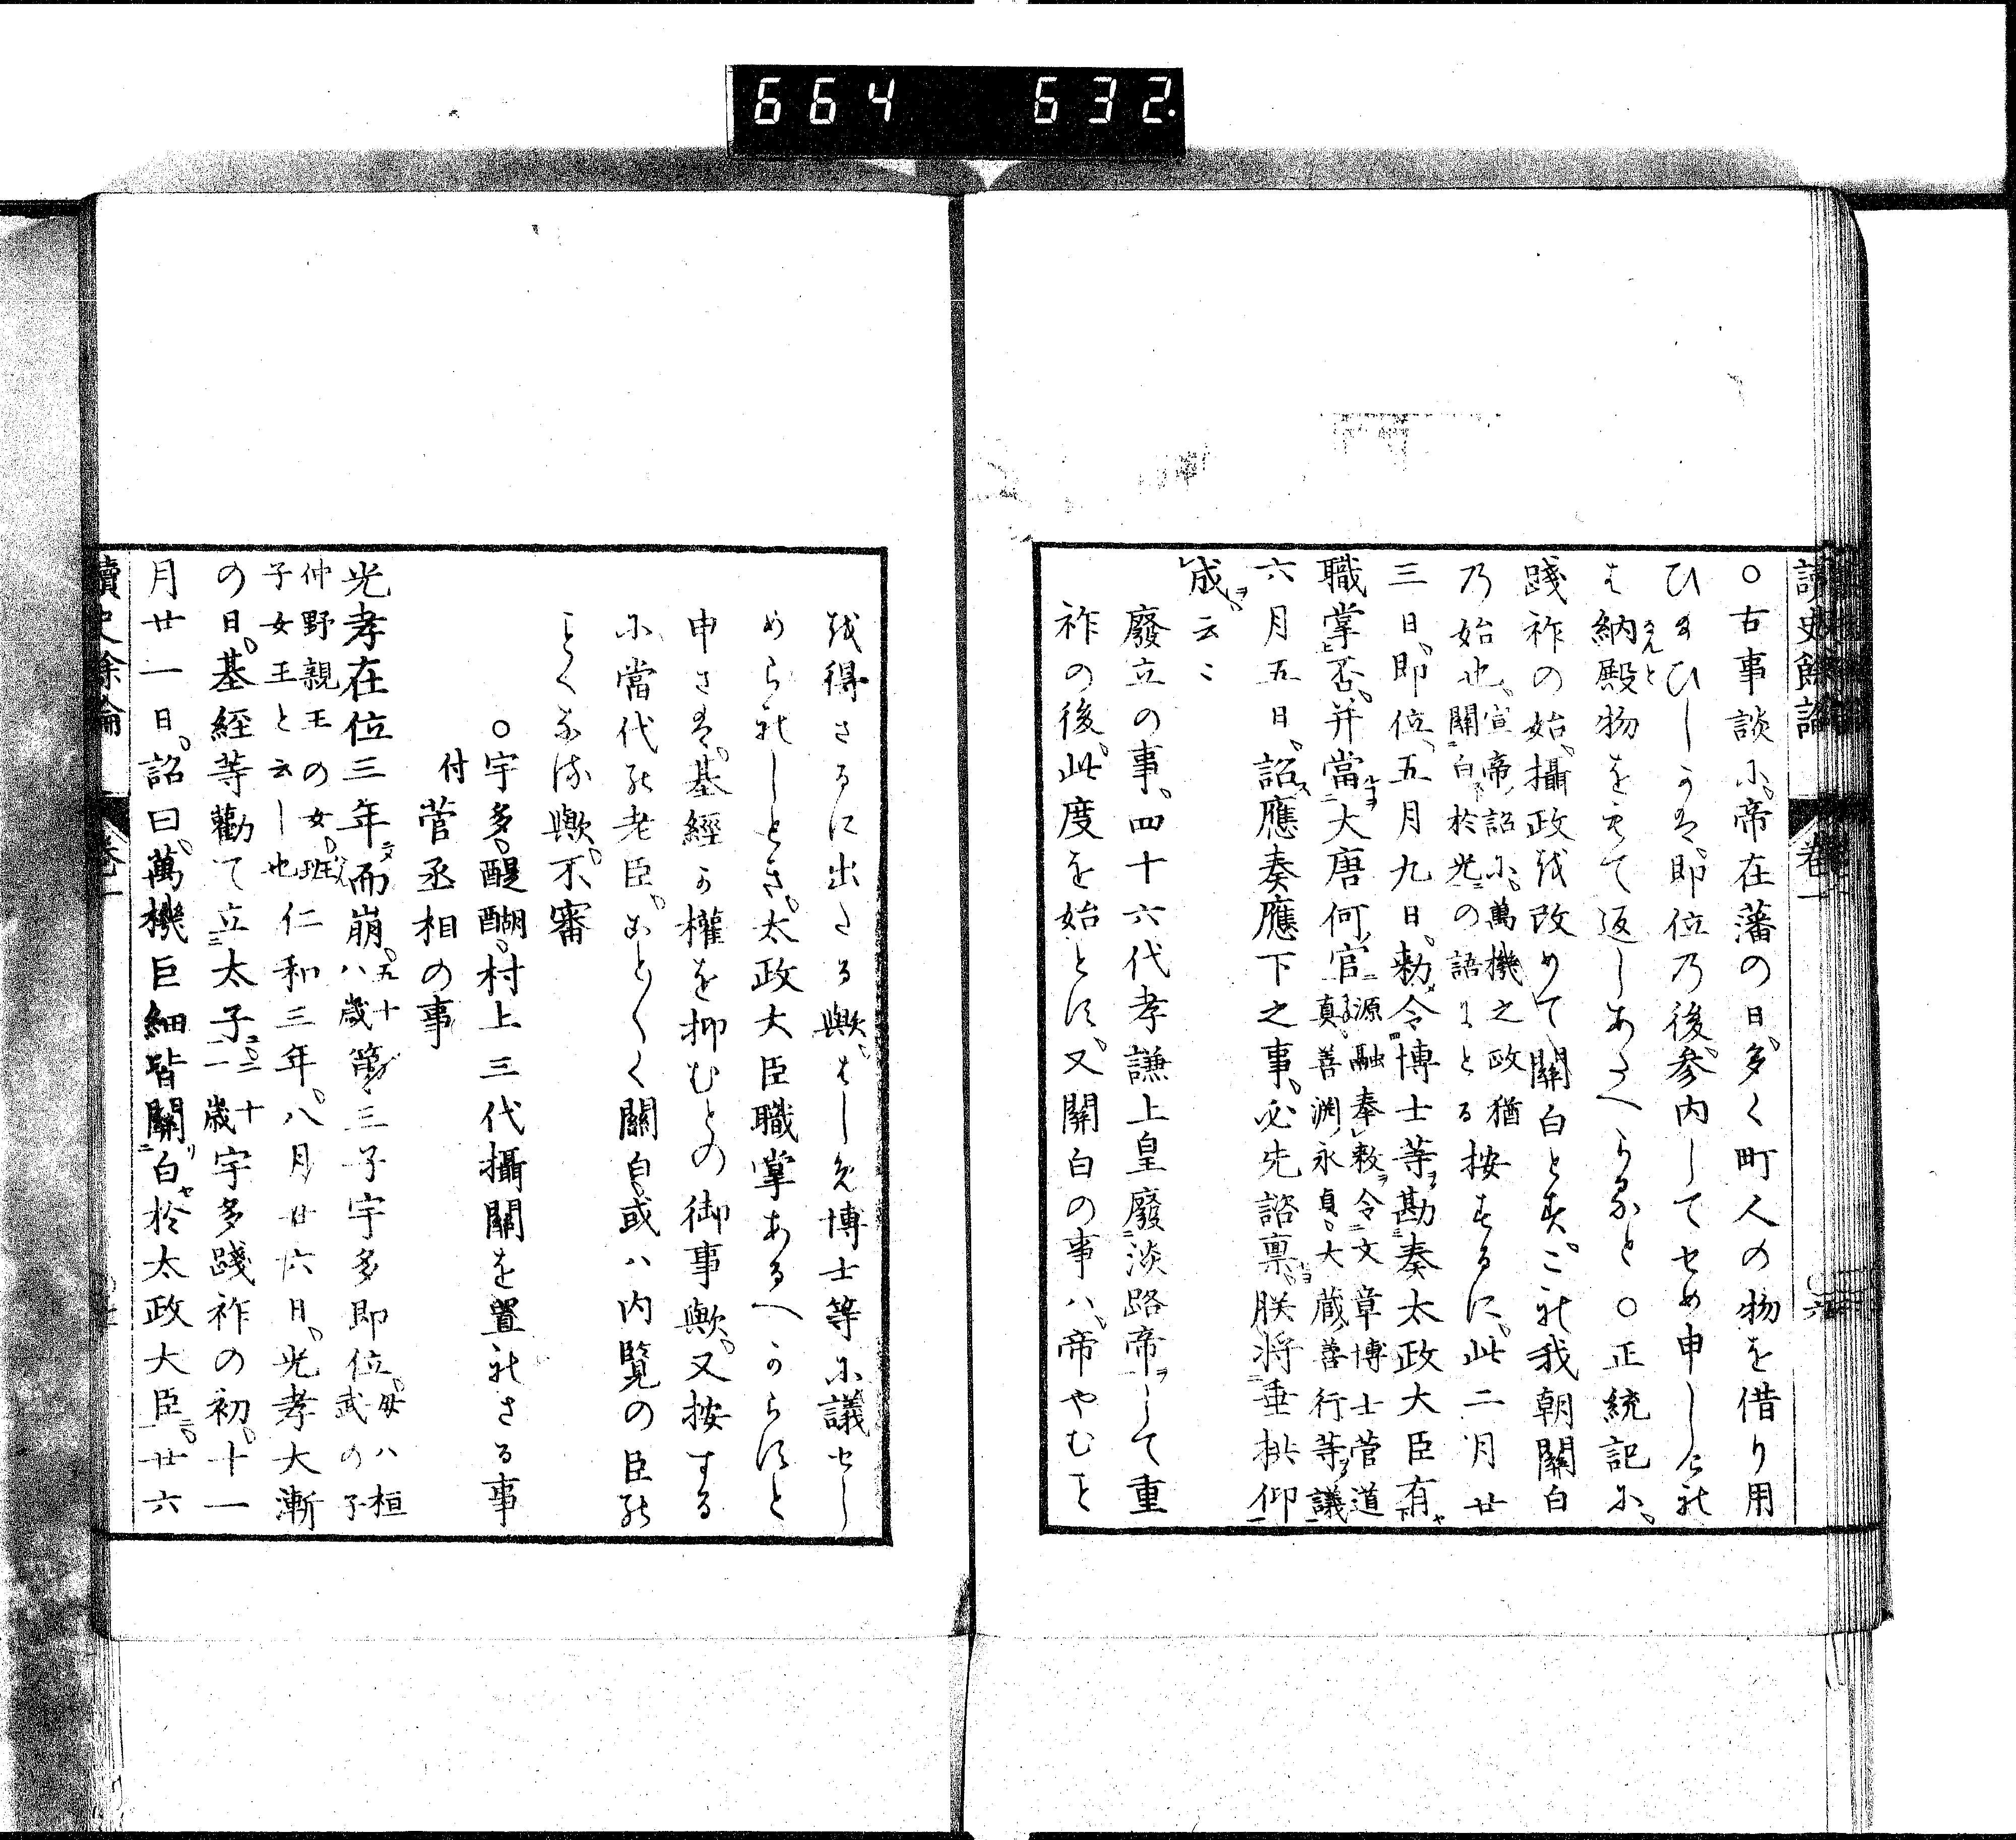 664 632
讀史餘論 卷一 ○六
○古事談に、帝在藩の日、多く町人の物を借り用
ひ給ひしかは、即位乃後、參内してせめ申しけれ
は納殿物を以て返しあたへらると○正統記に、
踐祚の始、攝政を改めて關白と㐧、これ我朝關白
乃始也、宣帝ノ詔に、萬機之政猶關白於光の語によとる按するに、此二月廿
三日、即位、五月九日、勅令博士等勘奏太政大臣有
職掌否、并當大唐何官源融奉敕令文章博士菅道真、善淵永貞、大蔵善行等議
六月五日、詔應奏應下之事、必先諮稟、朕將垂拱仰
成、云云
廢立の事、四十六代孝謙上皇廢淡路帝して重
祚の後、此度を始とす、又關白の事ハ、帝やむを
を得さるに出たる歟、もしくは博士等に議せし
められしとき、太政大臣職掌あるへからすと
申さは、基經の權を抑むとの御事歟、又按する
に當代の老臣、ことことく關白、或ハ内覽の臣の
ことくなる歟、不審
○宇多、醍醐、村上三代攝關を置れさる事
付菅丞相の事
光孝在位三年而崩、五十八歳第三子宇多即位、母ハ桓武の子
仲野親王の女、班子女王と云し也仁和三年、八月廿六日、光孝大漸
の日、基經等勸て立太子二十一歳宇多踐祚の初、十一
月廿一日、詔曰、萬機巨細皆關白於太政大臣、廿六
讀史餘論 卷一